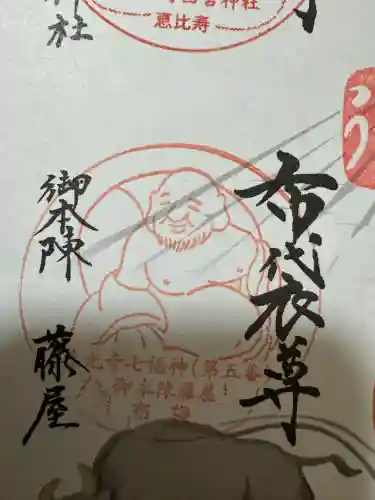 神社
宮神社
恵比寿
う
布袋尊
七福神(第五番)
御本陣藤屋
布袋
御本陣
藤屋